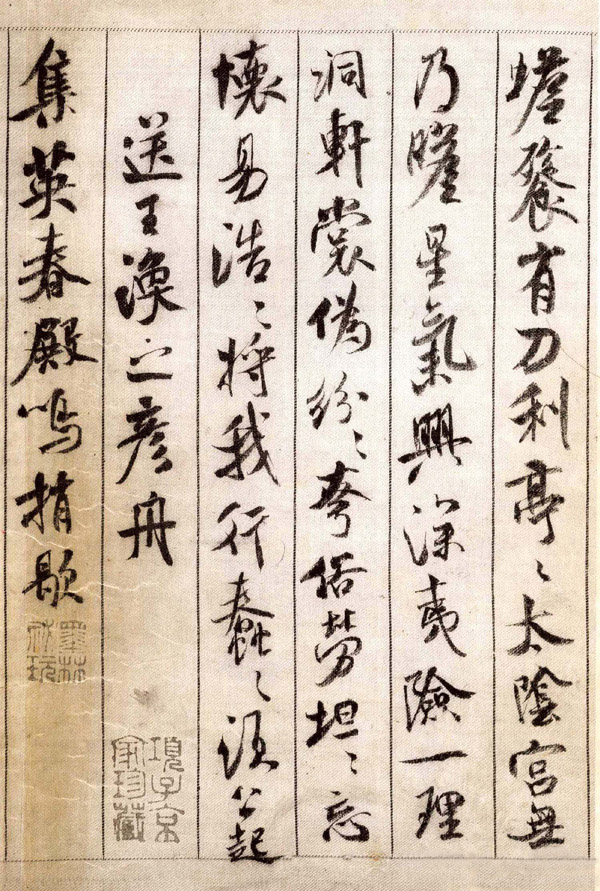 蟾餮有刀利亭〻太陰宮無
乃瞻星氣興深夷險一理
洞軒裳偽紛〻夸俗勞坦〻忘
懷易浩〻將我行蠢〻須公起
送王渙之彥舟
項子京
家珍藏
集英春殿鳴捎歇
墨林
秘玩